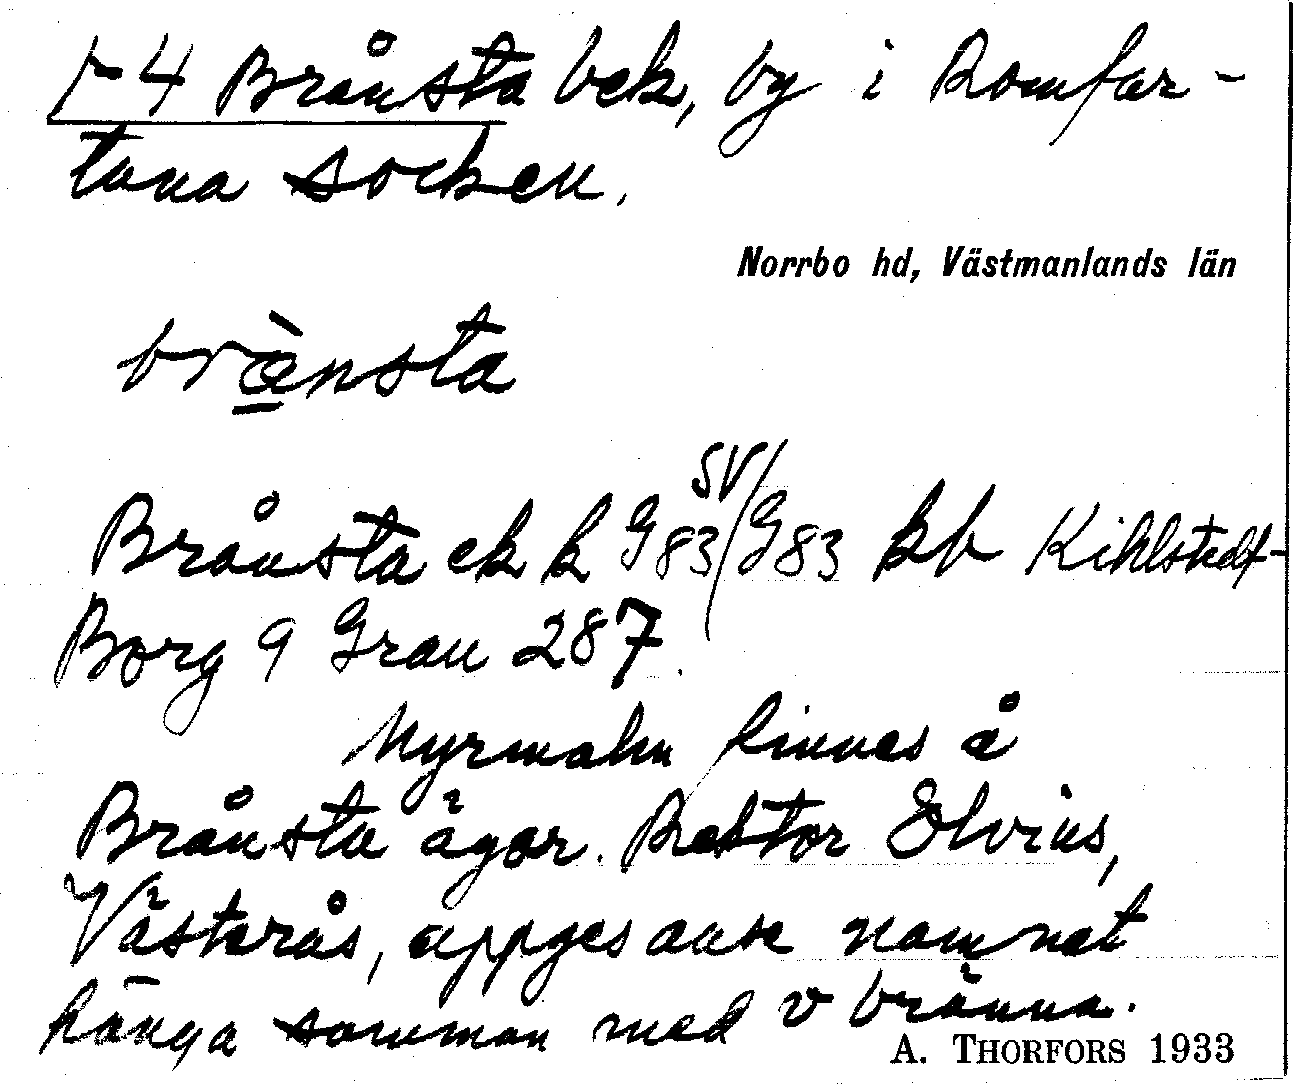 1-4 Brånsta bek, by i Romfar-
tuna socken.
Norrbo hd, Västmanlands län
bræ̀nsta
SV/
Brånsta ek k G83/G83 kb Kihlstedt-
Borg 9 Gran 287.
Myrmalm finnes å
Brånsta ägor. Rektor Elvius,
Västerås, uppges anse namnet
hänga samman med v bränna.
A. THORFORS 1933